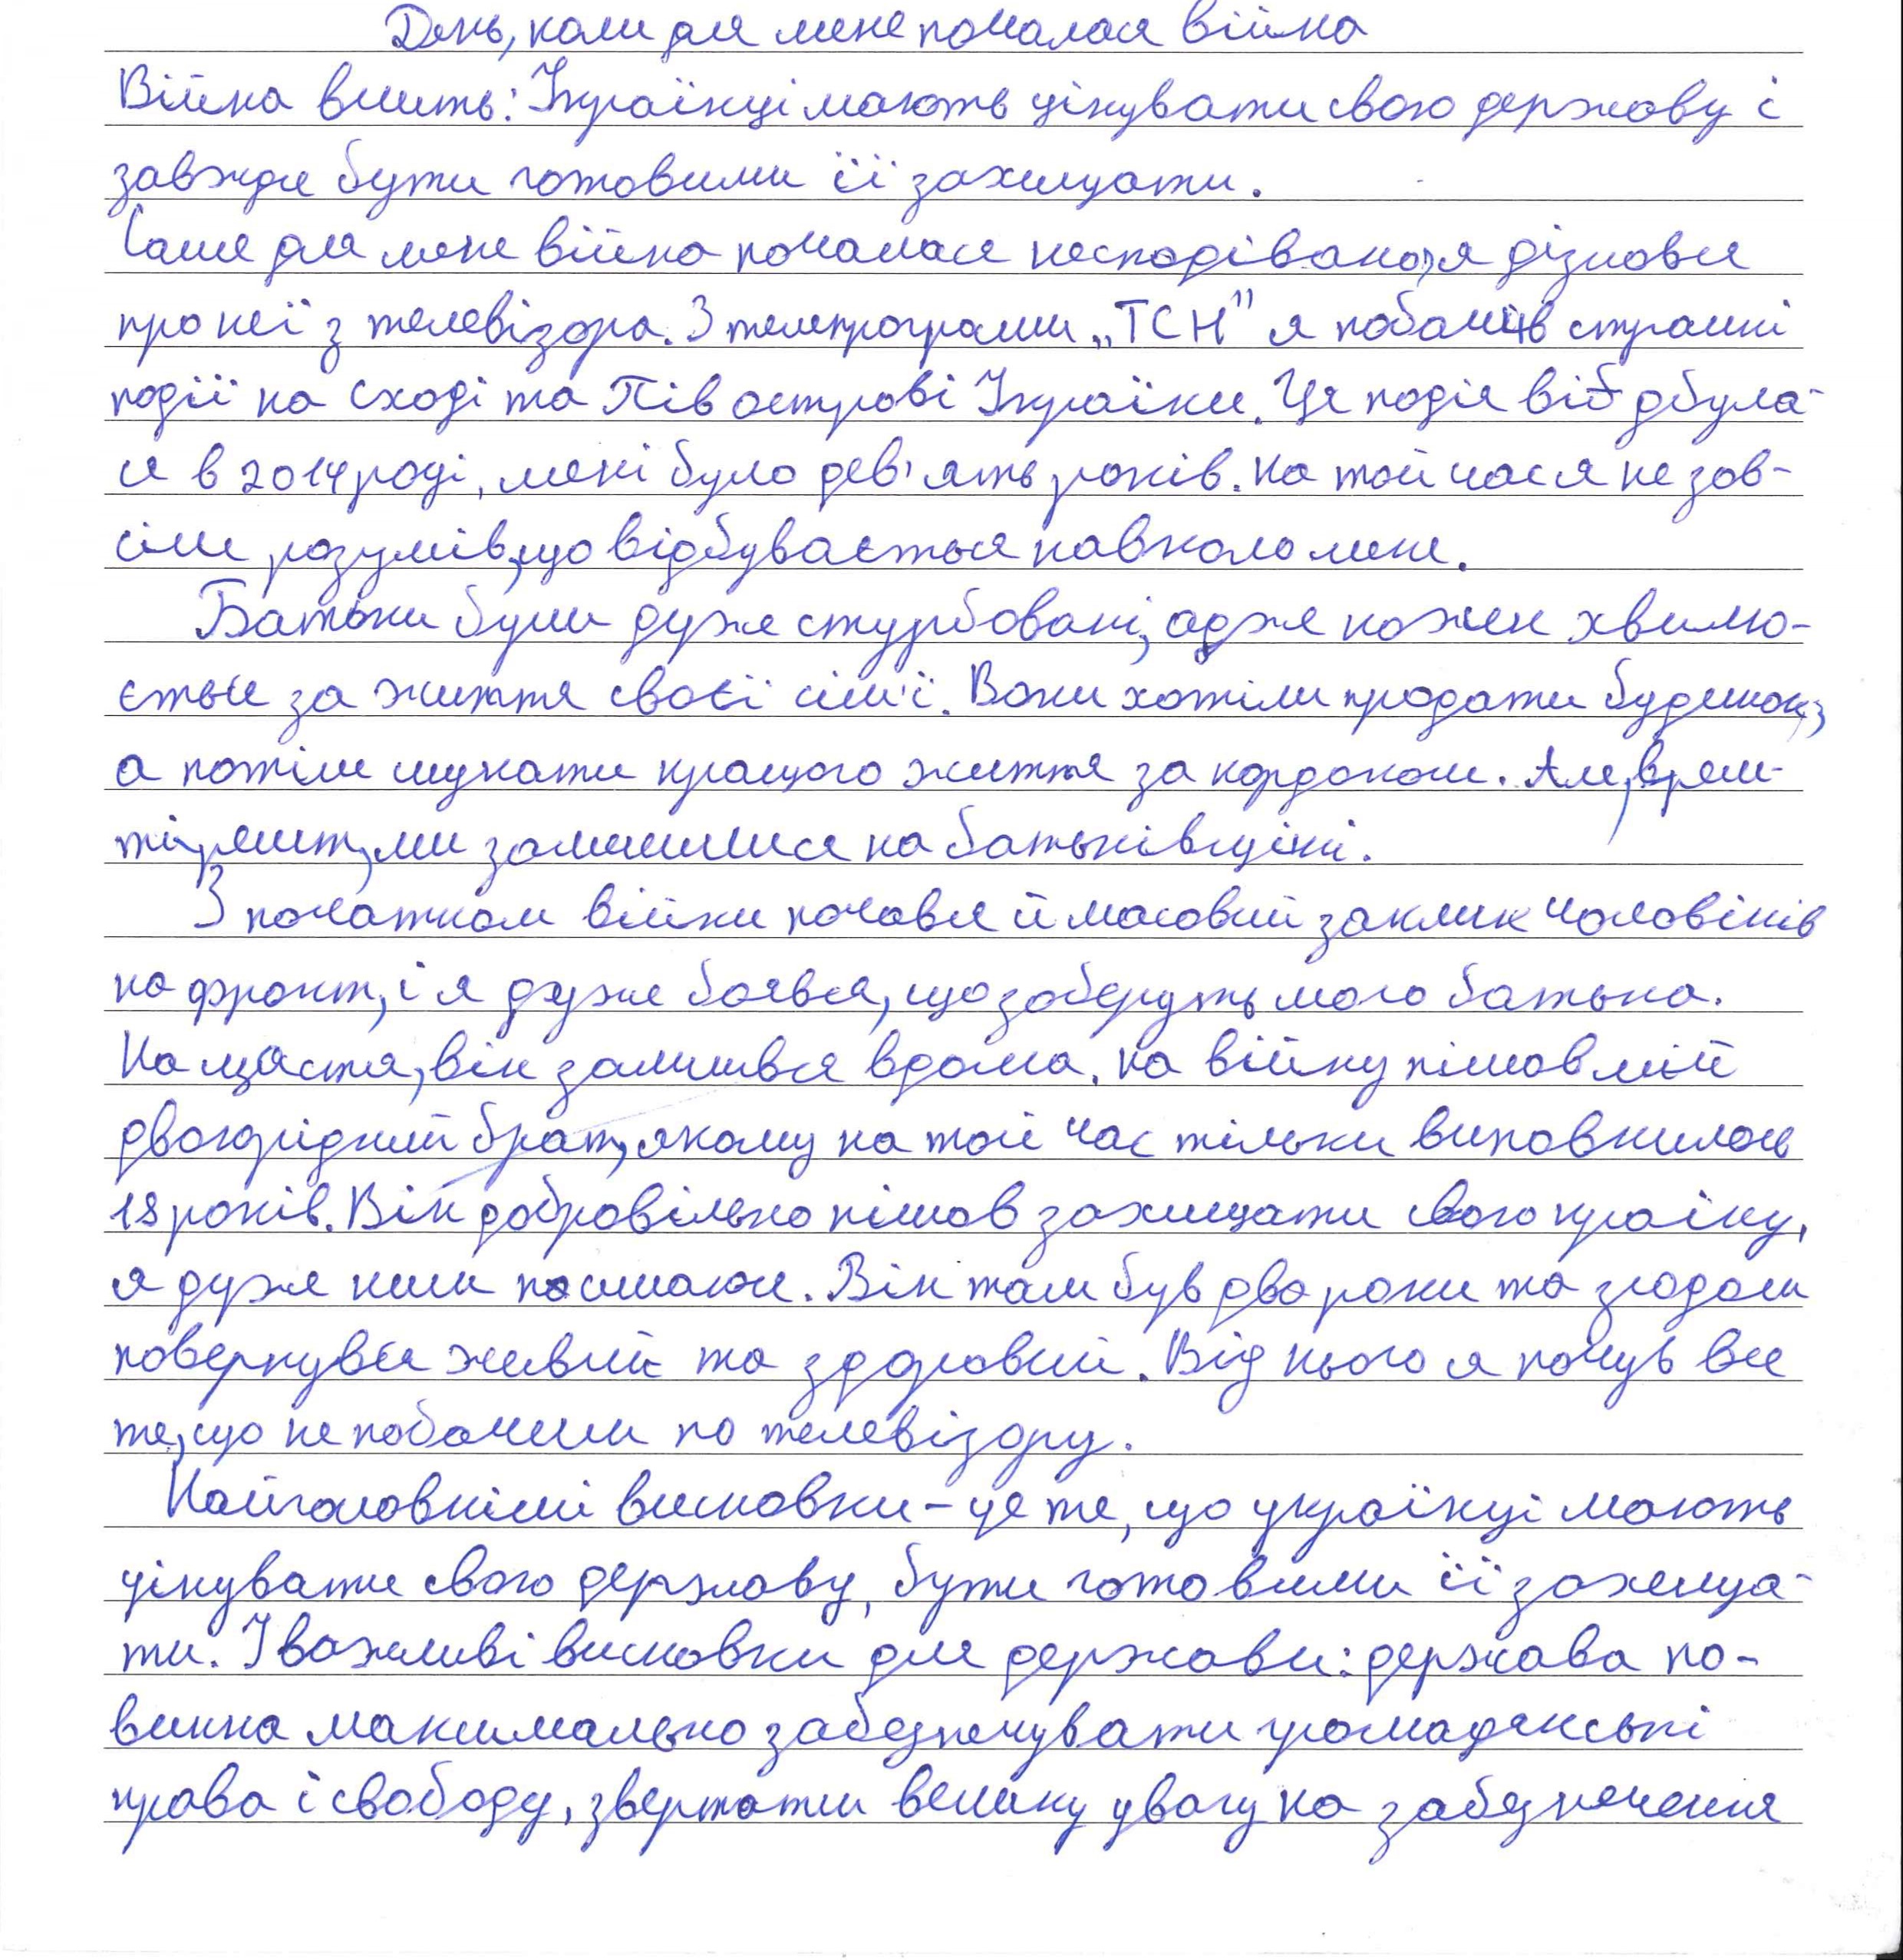 День, коли для мене почалася війна
Війна вчить: Українці мають цінувати свою державу і
завжди бути готовими її захищати.
Саме для мене війна почалася несподівано, я дізнався
про неї з телевізора. З телепрограми „ТСН” я побачив страшні
події на Сході та Пів острові України. Ця подія від дбула-
ся в 2014 році, мені було дев'ять років. На той час я не зов-
сім розумів, що відбувається навколо мене.
Батьки були дуже стурбовані, адже кожен хвилю-
ється за життя своєї сім'ї. Вони хотіли продати будинок,
а потім шукати кращого життя за кордоном. Але, вреш-
ті решт, ми залишилися на батьківщині.
З початком війни почався й масовий заклик чоловіків
на фронт, і я дуже боявся, що заберуть мого батька.
На щастя, він залишився вдома. На війну пішов мій
двоюрідний брат, якому на той час тільки виповнилось
18 років. Він добровільно пішов захищати свою країну,
я дуже ним пошаюся. Він там був два роки та згодом
повернувся живий та здоровий. Від нього я почув все
те, що не побачиш по телевізору.
Найголовніші висновки - це те, що українці мають
цінувати свою державу, бути готовими її захища-
ти. І важливі висновки для держави: держава по-
винна максимально забезпечувати громадянські
права і свободу, звертати велику увагу на забезпечення